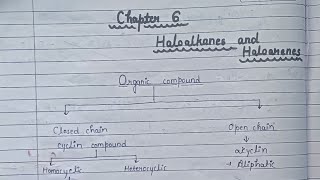 Chapter 6
Haloalkanes and
Haloarenes
Organic compound
Closed chain
Open chain
cyclin compound
acyclin
Homocyclic
Heterocyclic
→ Aliphatic